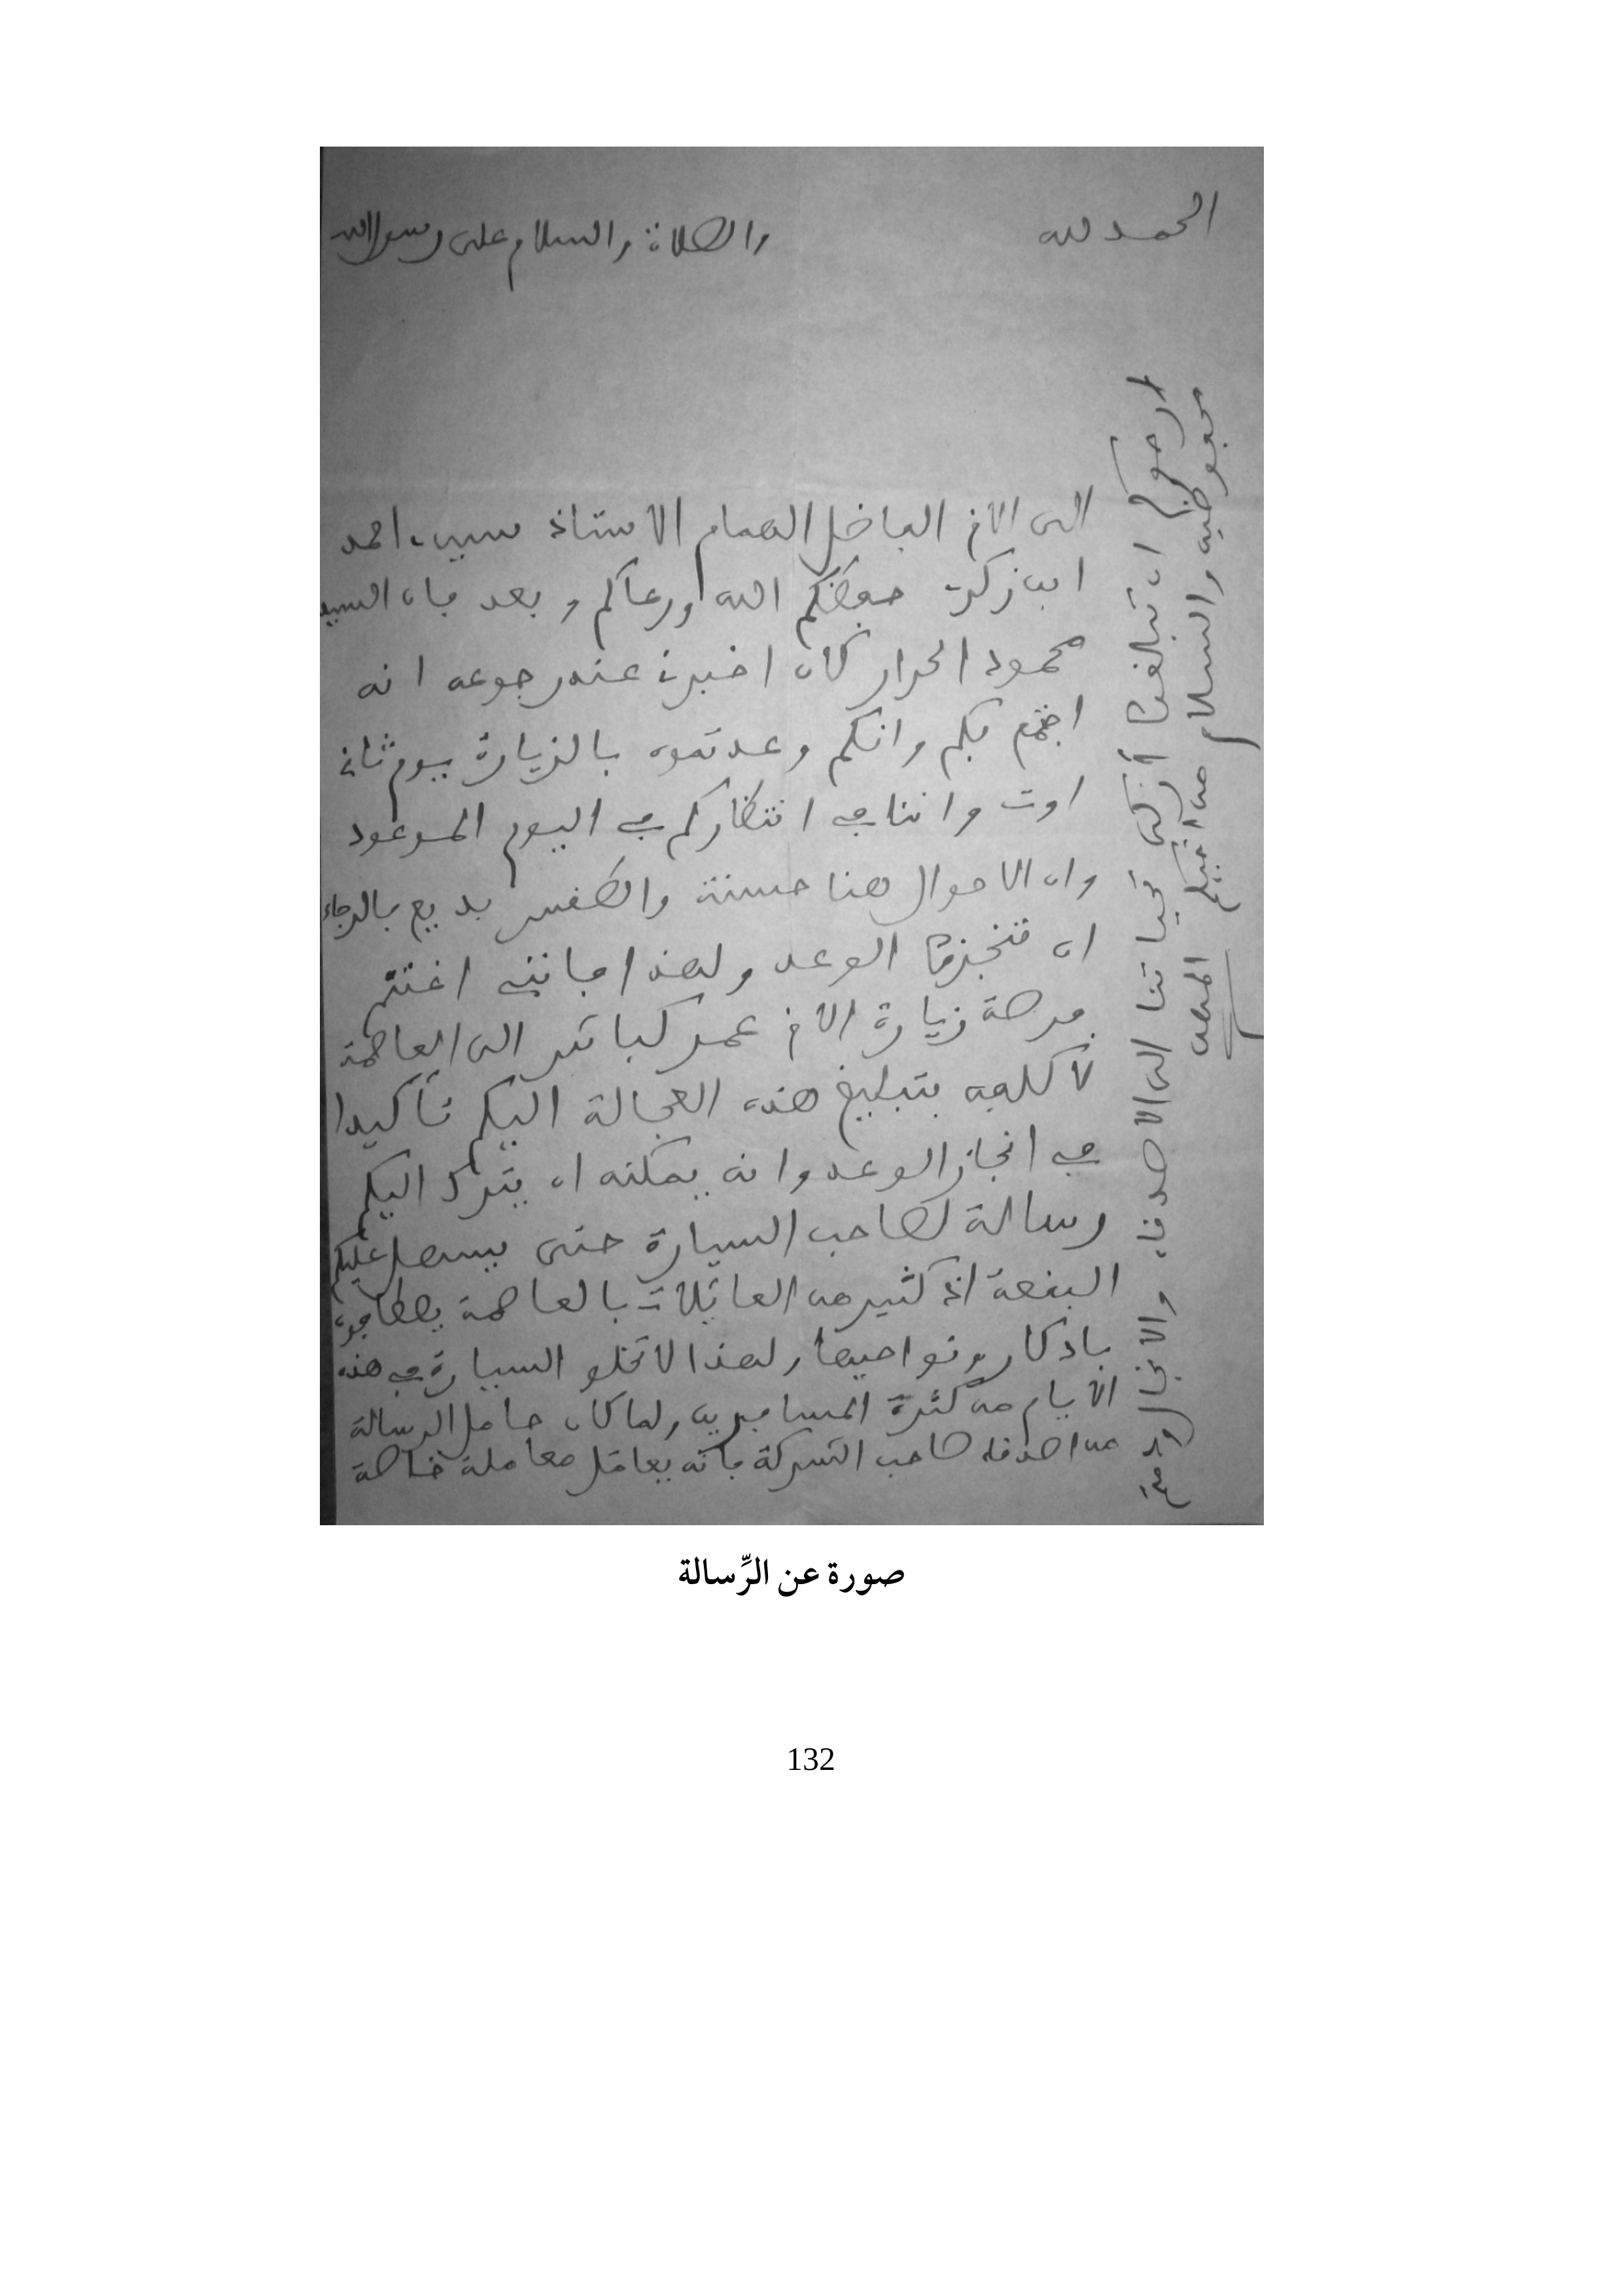 الحمد لله
والصلاة والسلام على رسول الله
الى الاخ الفاضل الهمام الاستاذ سيدي احمد
ابن زكري حفظكم الله ورعاكم وبعد فان السيد
محمود الحرار كان اخبرني عند رجوعه انه
اجتمع بكم وانكم وعدتموه بالزيارة يوم ثاني
اوت واننا في انتظاركم في اليوم الموعود
وان الاحوال هنا حسنة والطقس بديع بالرجاء
ان تنجزوا الوعد ولهذا فانني اغتنم
فرصة زيارة الاخ عمر كباتر الى العاصمة
لاكلفه بتبليغ هذه العجالة اليكم تأكيدا
في انجاز الوعد وانه يمكنه ان يترك اليكم
رسالة لصاحب السيارة حتى يسهل عليكم
اذ كثير من العائلات بالعاصمة
ونواحيها ولهذا لا تخلو السيارة في هذه
الايام من كثرة المسافرين ولما كان حامل الرسالة
من اصدقاء صاحب الشركة فانه يعامل معاملة خاصة
ارجوكم ان تبلغوا أزكى تحياتنا الى الاصدقاء والانجال
محفوظين والسلام من اخيكم
صورة عن الرِّسالة
132